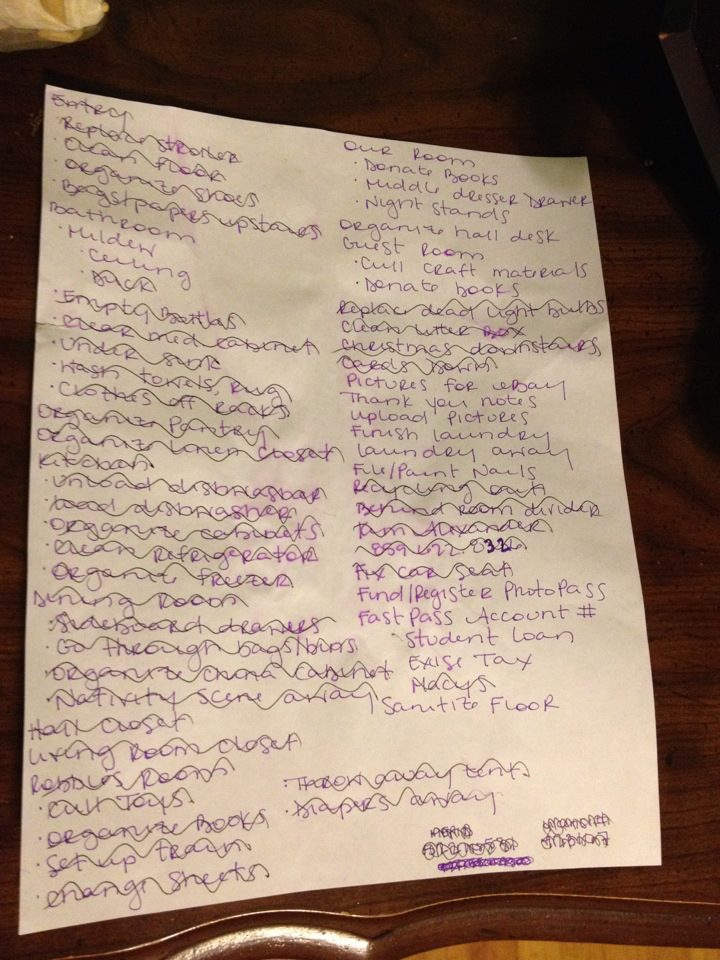 Entry
· Replace stroller
· Clean floor
· Organize shoes
· Bags/papers upstairs
Bathroom
· Mildew
· Ceiling
· Back
· Empty Bottles
· Clear med cabinet
· Under sink
· Wash towels, rug
· Clothes off racks
Organize Pantry
Organize Linen Closet
Kitchen
· Unload dishwasher
· Load dishwasher
· Organize cabinets
· Clean Refrigerator
· Organize freezer
Dining Room
· Sideboard drawers
· Go through bags/bins
· Organize China Cabinet
· Nativity Scene away
Hall Closet
Living Room Closet
Robbie's Room
· Cull Toys
· Organize Books
· Set up train
· Change Sheets
· Throw away tent
· Diapers away
Our Room
· Donate Books
· Middle dresser Drawer
· Night stands
Organize hall desk
Guest Room
· Cull craft materials
· Donate books
Replace dead light bulbs
Clean litter Box
Christmas downstairs
Cards
Pictures for eBay
Thank you notes
Upload Pictures
Finish laundry
laundry away
File/Paint Nails
Recycling out
Behind Room divider
Alexander
Fix car seat
Find/Register PhotoPass
FastPass Account #
· Student Loan
Exise Tax
Macys
Sanitize Floor